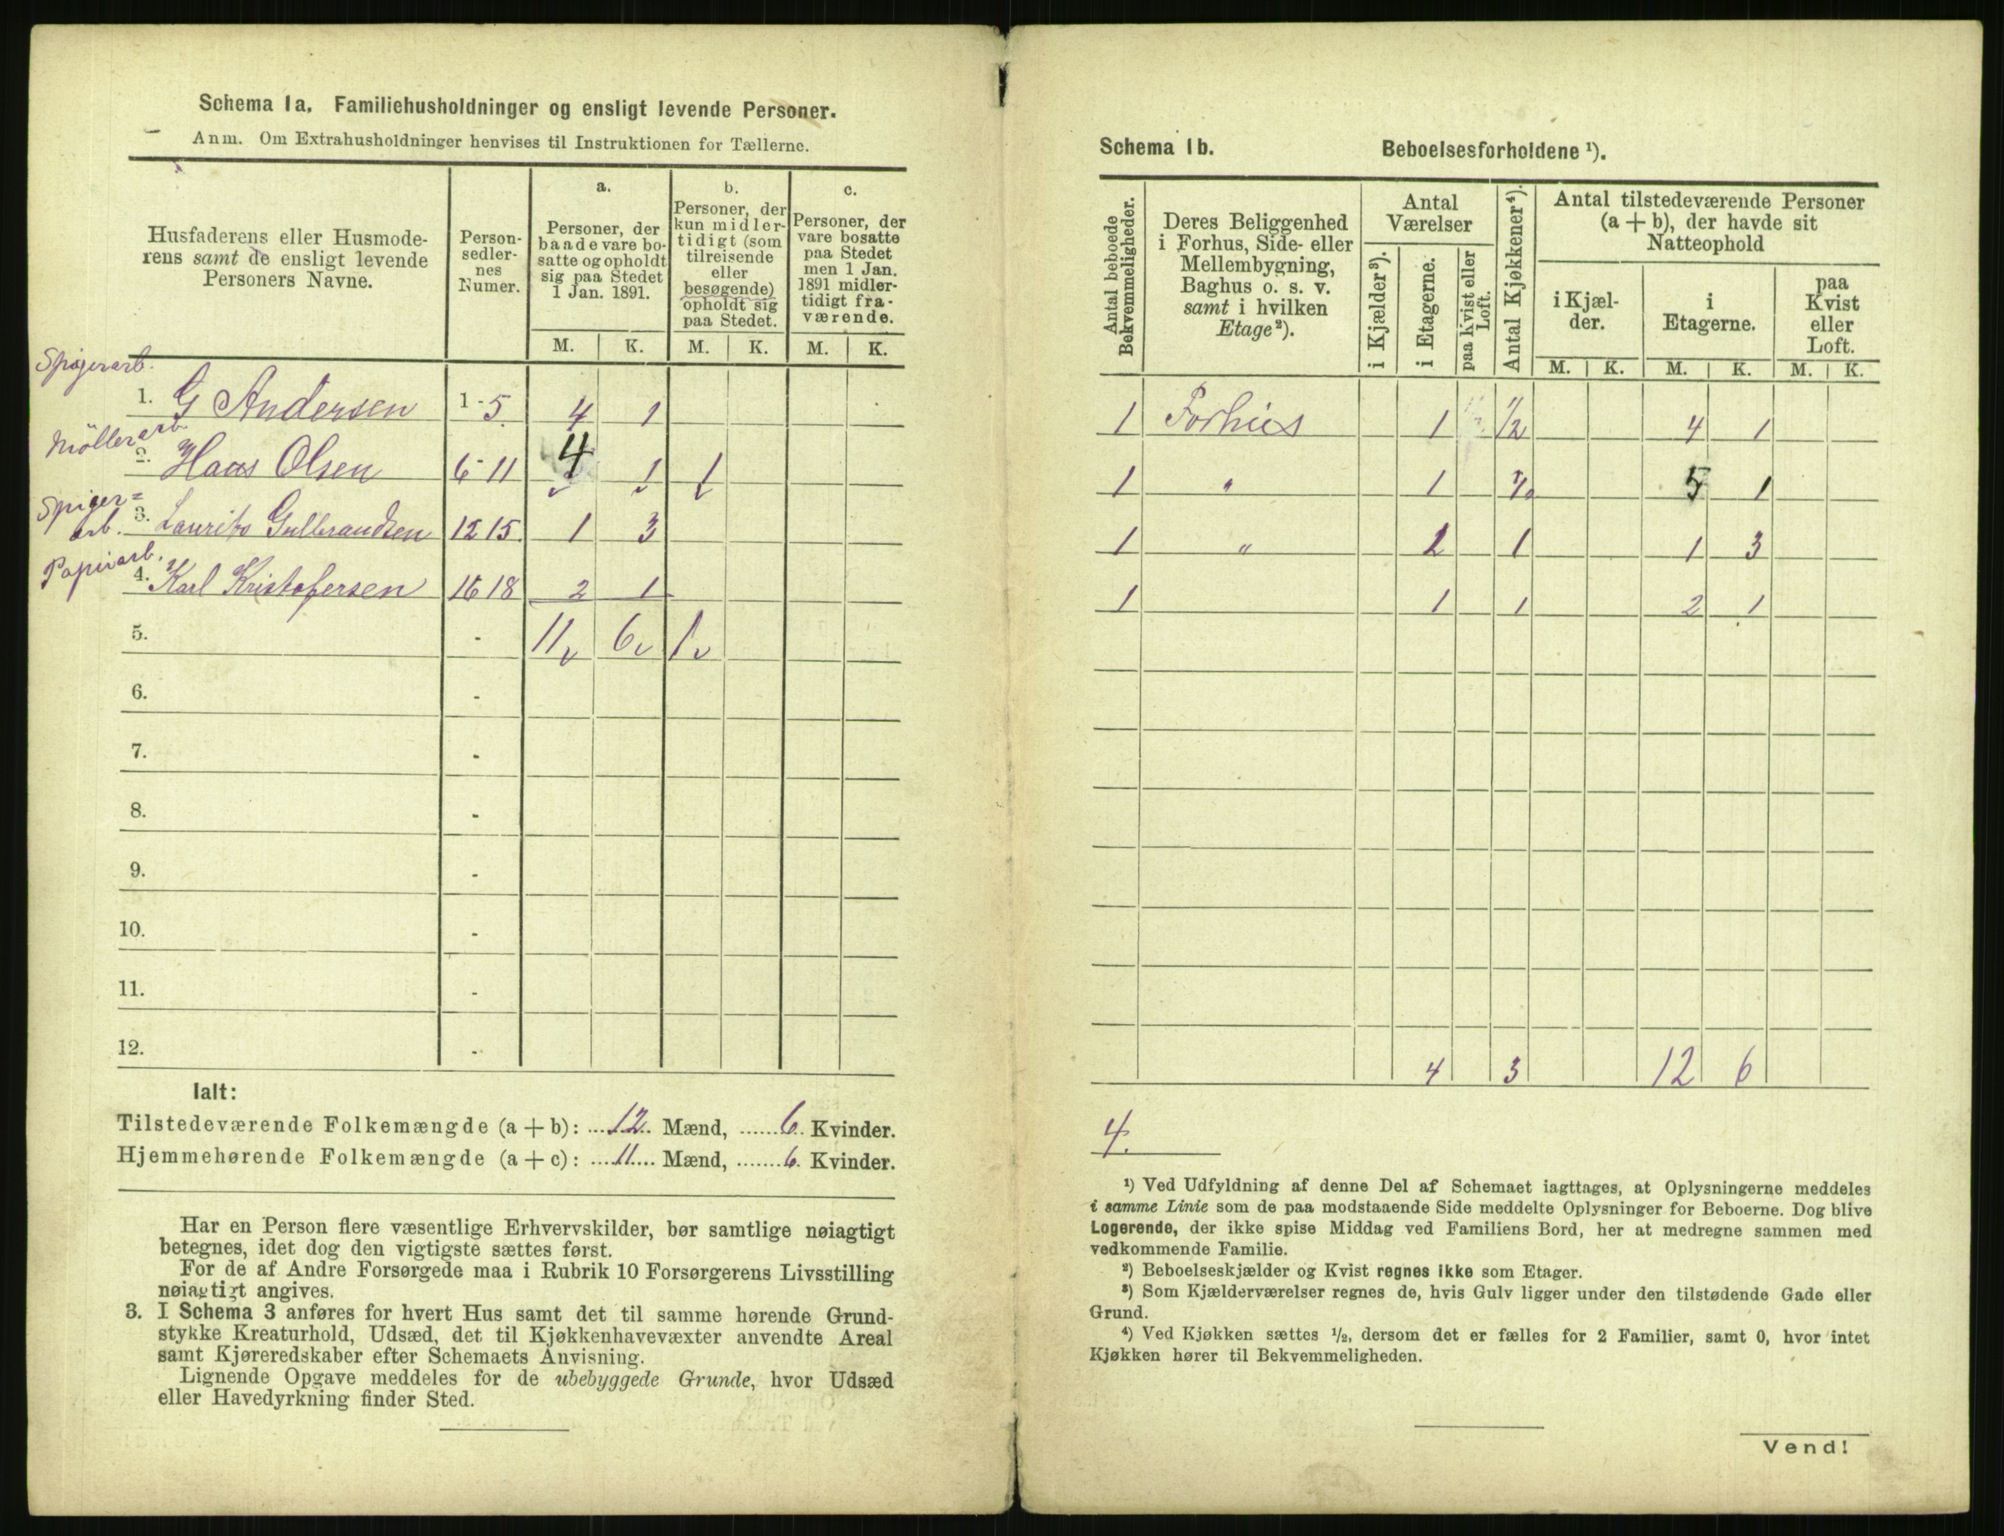 Schema Ia. Familiehusholdninger og ensligt levende Personer.
Anm. Om Extrahusholdninger henvises til Instruktionen for Tællerne.
Husfaderens eller Husmode-
rens samt de ensligt levende
Personers Navne.
Person-
sedler-
nes
Numer.
a.
Personer, der
baade vare bo-
satte og opholdt
sig paa Stedet
1 Jan. 1891.
b.
Personer, der
kun midler-
tidigt (som
tilreisende
eller
besøgende)
opholdt sig
paa Stedet.
c.
Personer, der
vare bosatte
paa Stedet
men 1 Jan.
1891 midler-
tidigt fra-
værende.
M. K. M. K. M. K.
Spigerarb.
1. G Andersen 1-5. 4 1
Möllerarb.
2. Hans Olsen 6-11 4 1 1
Spiger=
arb. 3. Laurits Gulbrandsen 12 15. 1 3
Papirarb.
4. Karl Kristofersen 16 18 2 1
5. - 11 6 1
6. -
7. -
8. -
9. -
10. -
11. -
12. -
Ialt:
Tilstedeværende Folkemængde (a + b): 12 Mænd, 6 Kvinder.
Hjemmehørende Folkemængde (a + c): 11 Mænd, 6 Kvinder.
Har en Person flere væsentlige Erhvervskilder, bør samtlige nøiagtigt
betegnes, idet dog den vigtigste sættes først.
For de af Andre Forsørgede maa i Rubrik 10 Forsørgerens Livsstilling
nøiagtigt angives.
3. I Schema 3 anføres for hvert Hus samt det til samme hørende Grund-
stykke Kreaturhold, Udsæd, det til Kjøkkenhavevæxter anvendte Areal
samt Kjøreredskaber efter Schemaets Anvisning.
Lignende Opgave meddeles for de ubebyggede Grunde, hvor Udsæd
eller Havedyrkning finder Sted.
Schema Ib. Beboelsesforholdene ¹).
Antal beboede
Bekvemmeligheder.
Deres Beliggenhed
i Forhus, Side- eller
Mellembygning,
Baghus o. s. v.
samt i hvilken
Etage²).
Antal
Værelser
i Kjælder³).
i Etagerne.
paa Kvist eller
Loft.
Antal Kjøkkener⁴).
Antal tilstedeværende Personer
(a + b), der havde sit
Natteophold
i Kjæl-
der.
i
Etagerne.
paa
Kvist
eller
Loft.
M. K. M. K. M. K.
1 Forhus 1 1/2 4 1
1 " 1 5 1
1 " 2 1 1 3
1 1 1 2 1
4 3 12 6
4.
¹) Ved Udfyldning af denne Del af Schemaet iagttages, at Oplysningerne meddeles
i samme Linie som de paa modstaaende Side meddelte Oplysninger for Beboerne. Dog blive
Logerende, der ikke spise Middag ved Familiens Bord, her at medregne sammen med
vedkommende Familie.
²) Beboelseskjælder og Kvist regnes ikke som Etager.
³) Som Kjælderværelser regnes de, hvis Gulv ligger under den tilstødende Gade eller
Grund.
⁴) Ved Kjøkken sættes ½, dersom det er fælles for 2 Familier, samt 0, hvor intet
Kjøkken hører til Bekvemmeligheden.
Vend!